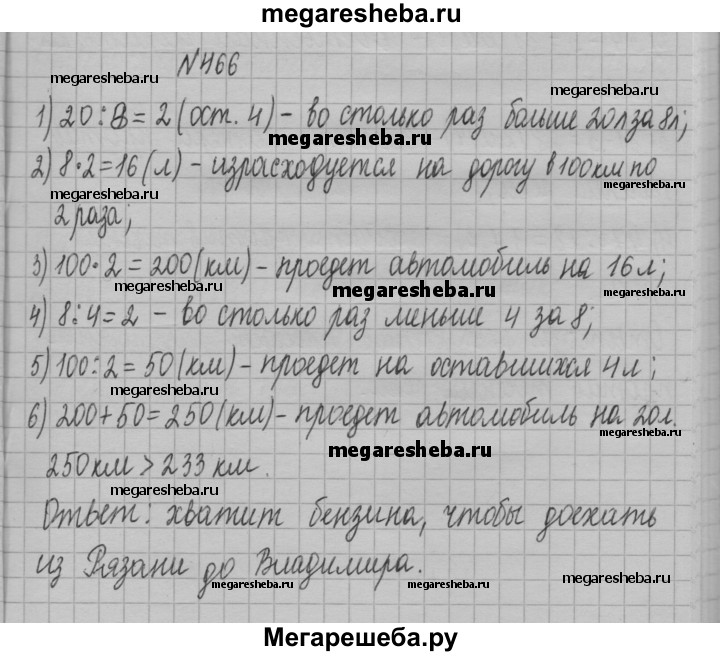 megaresheba.ru
№466
megaresheba.ru megaresheba.ru
1) 20:8=2 (ост. 4) - во столько раз больше 20л за 8л;
megaresheba.ru
2) 8·2=16(л) - израсходуется на дорогу в 100км по
megaresheba.ru megaresheba.ru
2 раза;
3) 100·2=200(км) - проедет автомобиль на 16л;
megaresheba.ru megaresheba.ru megaresheba.ru
4) 8:4=2 - во столько раз меньше 4 за 8;
5) 100:2=50(км) - проедет на оставшихся 4л;
megaresheba.ru megaresheba.ru
6) 200+50=250(км) - проедет автомобиль на 20л.
megaresheba.ru megaresheba.ru
250км > 233 км.
megaresheba.ru
Ответ: хватит бензина, чтобы доехать
из Рязани до Владимира.
megaresheba.ru megaresheba.ru megaresheba.ru
Мегарешеба.ру